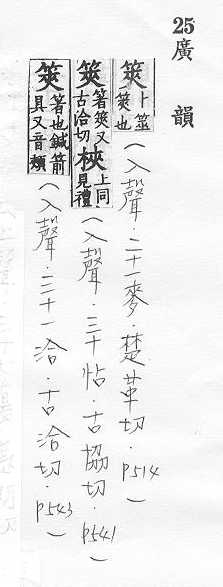 25 廣韻
筴 卜筮筴也（入聲．二十一麥．楚革切．P514）
筴 箸筴又古洽切 梜 上同見禮（入聲．三十帖．古協切．P541）
筴 箸也鍼箭具又音頰（入聲．三十一洽．古洽切．P543）